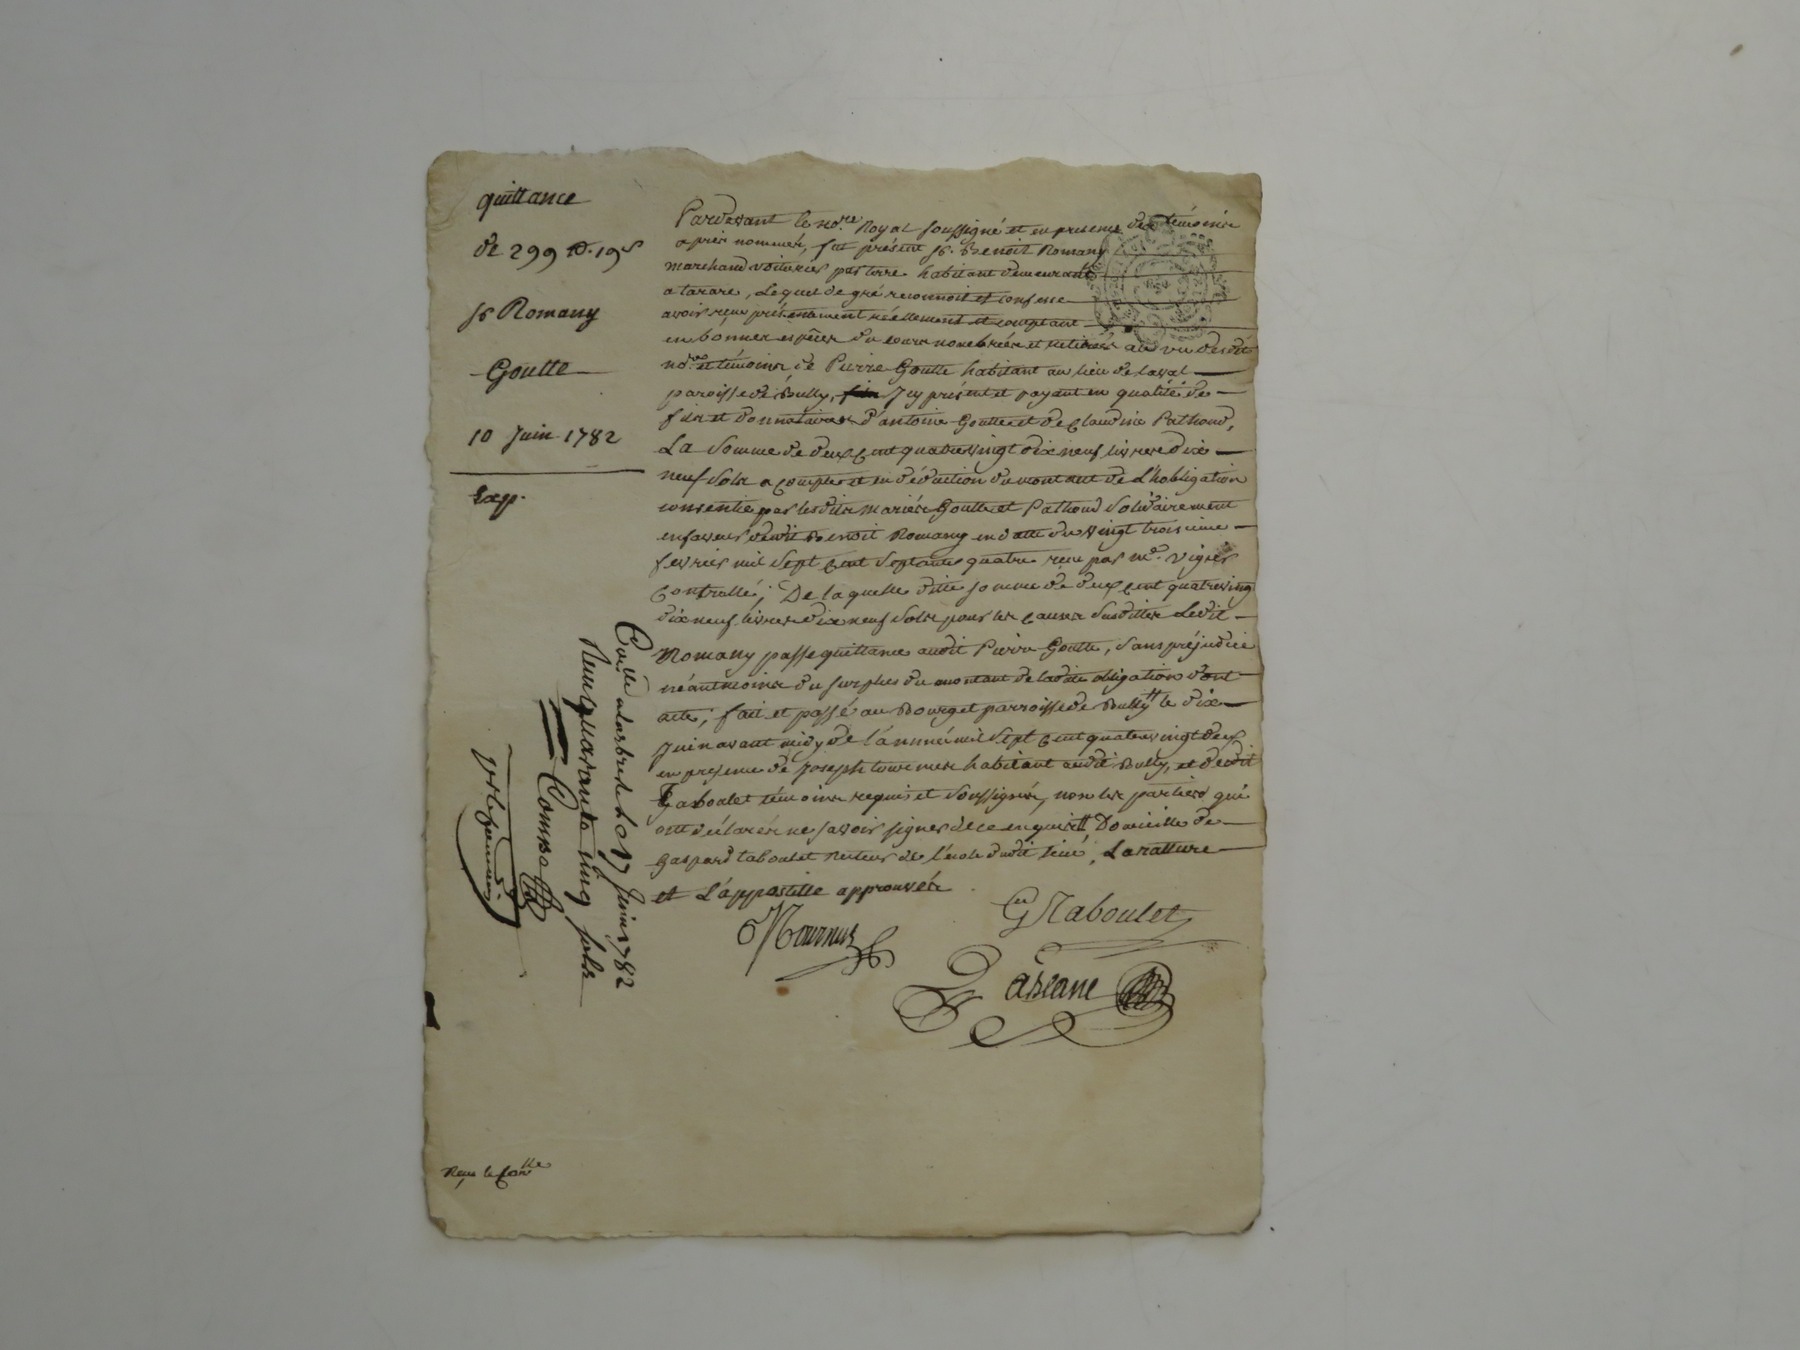 quittance
de 299 ₶. 19ˢ
sʳ Romany
Goutte
10 Juin 1782
Exp.
Pardevant le noʳᵉ Royal soussigné et en presence des témoins
après nommés, fut présent sʳ. Benoit Romany
marchand voiturier par terre habitant demeurant
a tarare, Lequel de gré reconnoit et confesse
avoir reçu présentement réellement et comptant
en bonnes espêces du cours nombrées et retirées au vu desdit
noʳᵉ et témoins de Pierre Goutte habitant au lieu de laval
paroisse de Bully, Icy présent et payant en qualité de
fils et donnataire d'antoine Goutte et de Claudine Pathoud,
La somme de deux cent quatrevingt dix neuf livres dix
neuf sols a compte et en déduction du montant de l'hobligation
consentie par lesdits mariés Goutte et Pathoud solidairement
en faveur dudit Benoit Romany en datte du vingt troisieme
fevrier mil sept cent septante quatre reçu par mᵉ. vigier
Controllé; De laquelle ditte somme de deux cent quatreving
dix neuf livres dix neuf sols pour les causes susdittes Ledit
Romany passe quittance audit Pierre Goutte, sans préjudice
néantmoins du surplus du montant de ladite obligation dont
acte; fait et passé au Bourg et parroisse de Bully ⧺ le dix
Juin avant midy de l'année mil sept cent quatrevingt deux
en presence de Joseph tournus habitant audit Bully, et dudit
Taboulet témoins requis et soussignés, non les parties qui
ont déclarés ne savoir signer de ce enquis ⧺ Domicille de
Gaspard taboulet Recteur de l'école dudit lieu, La rature
et L'appostille approuvés
JTournus
G Taboulet
Laseane
Conˡˡᵉ alarbresle Le 17 Juin 1782
Reçu quarante cinq sols
Comba
Reçu le Conˡˡᵉ